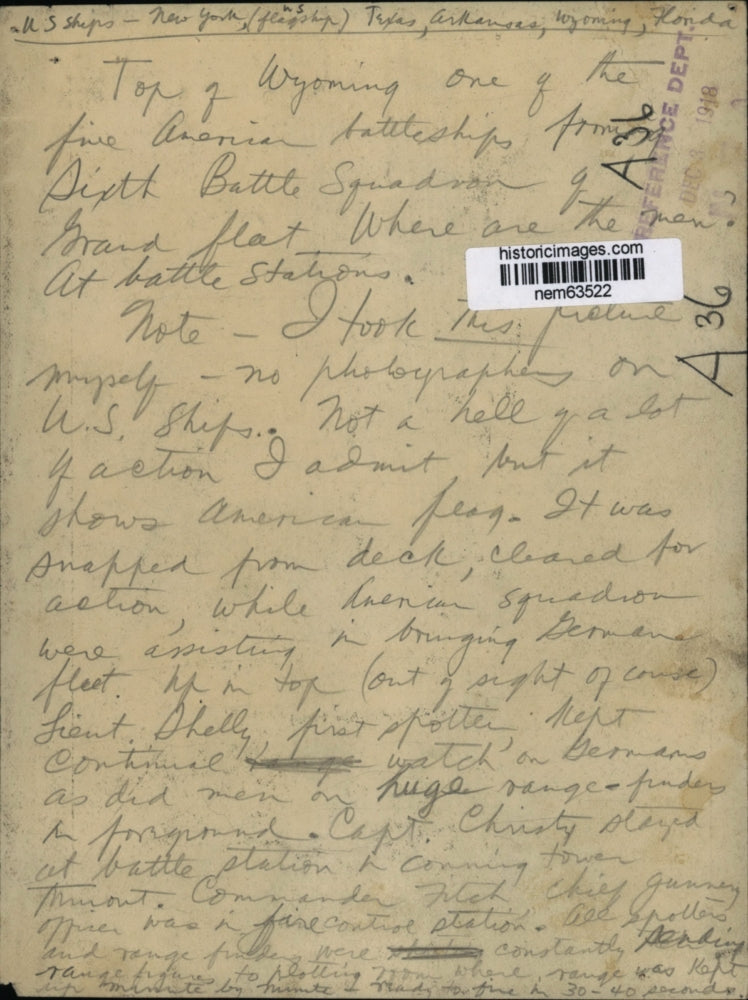 U S ships - New York, (flagship) U S Texas, Arkansas, Wyoming, Florida
Top of Wyoming one of the
five American battleships forming
Sixth Battle Squadron of
Grand fleet Where are the men?
At battle Stations.
Note - I took this picture
myself - no photographers on
U.S. Ships. Not a hell of a lot
of action I admit, but it
shows American flag. It was
snapped from deck, cleared for
action, while American squadron
were assisting in bringing German
fleet. Up in top (out of sight of course)
Lieut. Shelly, first spotter, Kept
continual watch on Germans
as did men on huge range-finders
in foreground. Capt. Christy stayed
at battle station in conning tower
Commander Fitch chief gunnery
officer was in fire control station. All spotters
and range finders were constantly sending
range figures to plotting room where range was Kept
up minute by minute - ready to fire in 30-40 seconds.
REFERENCE DEPT.
DEC 3 1918
A36
historicimages.com
nem63522
A36